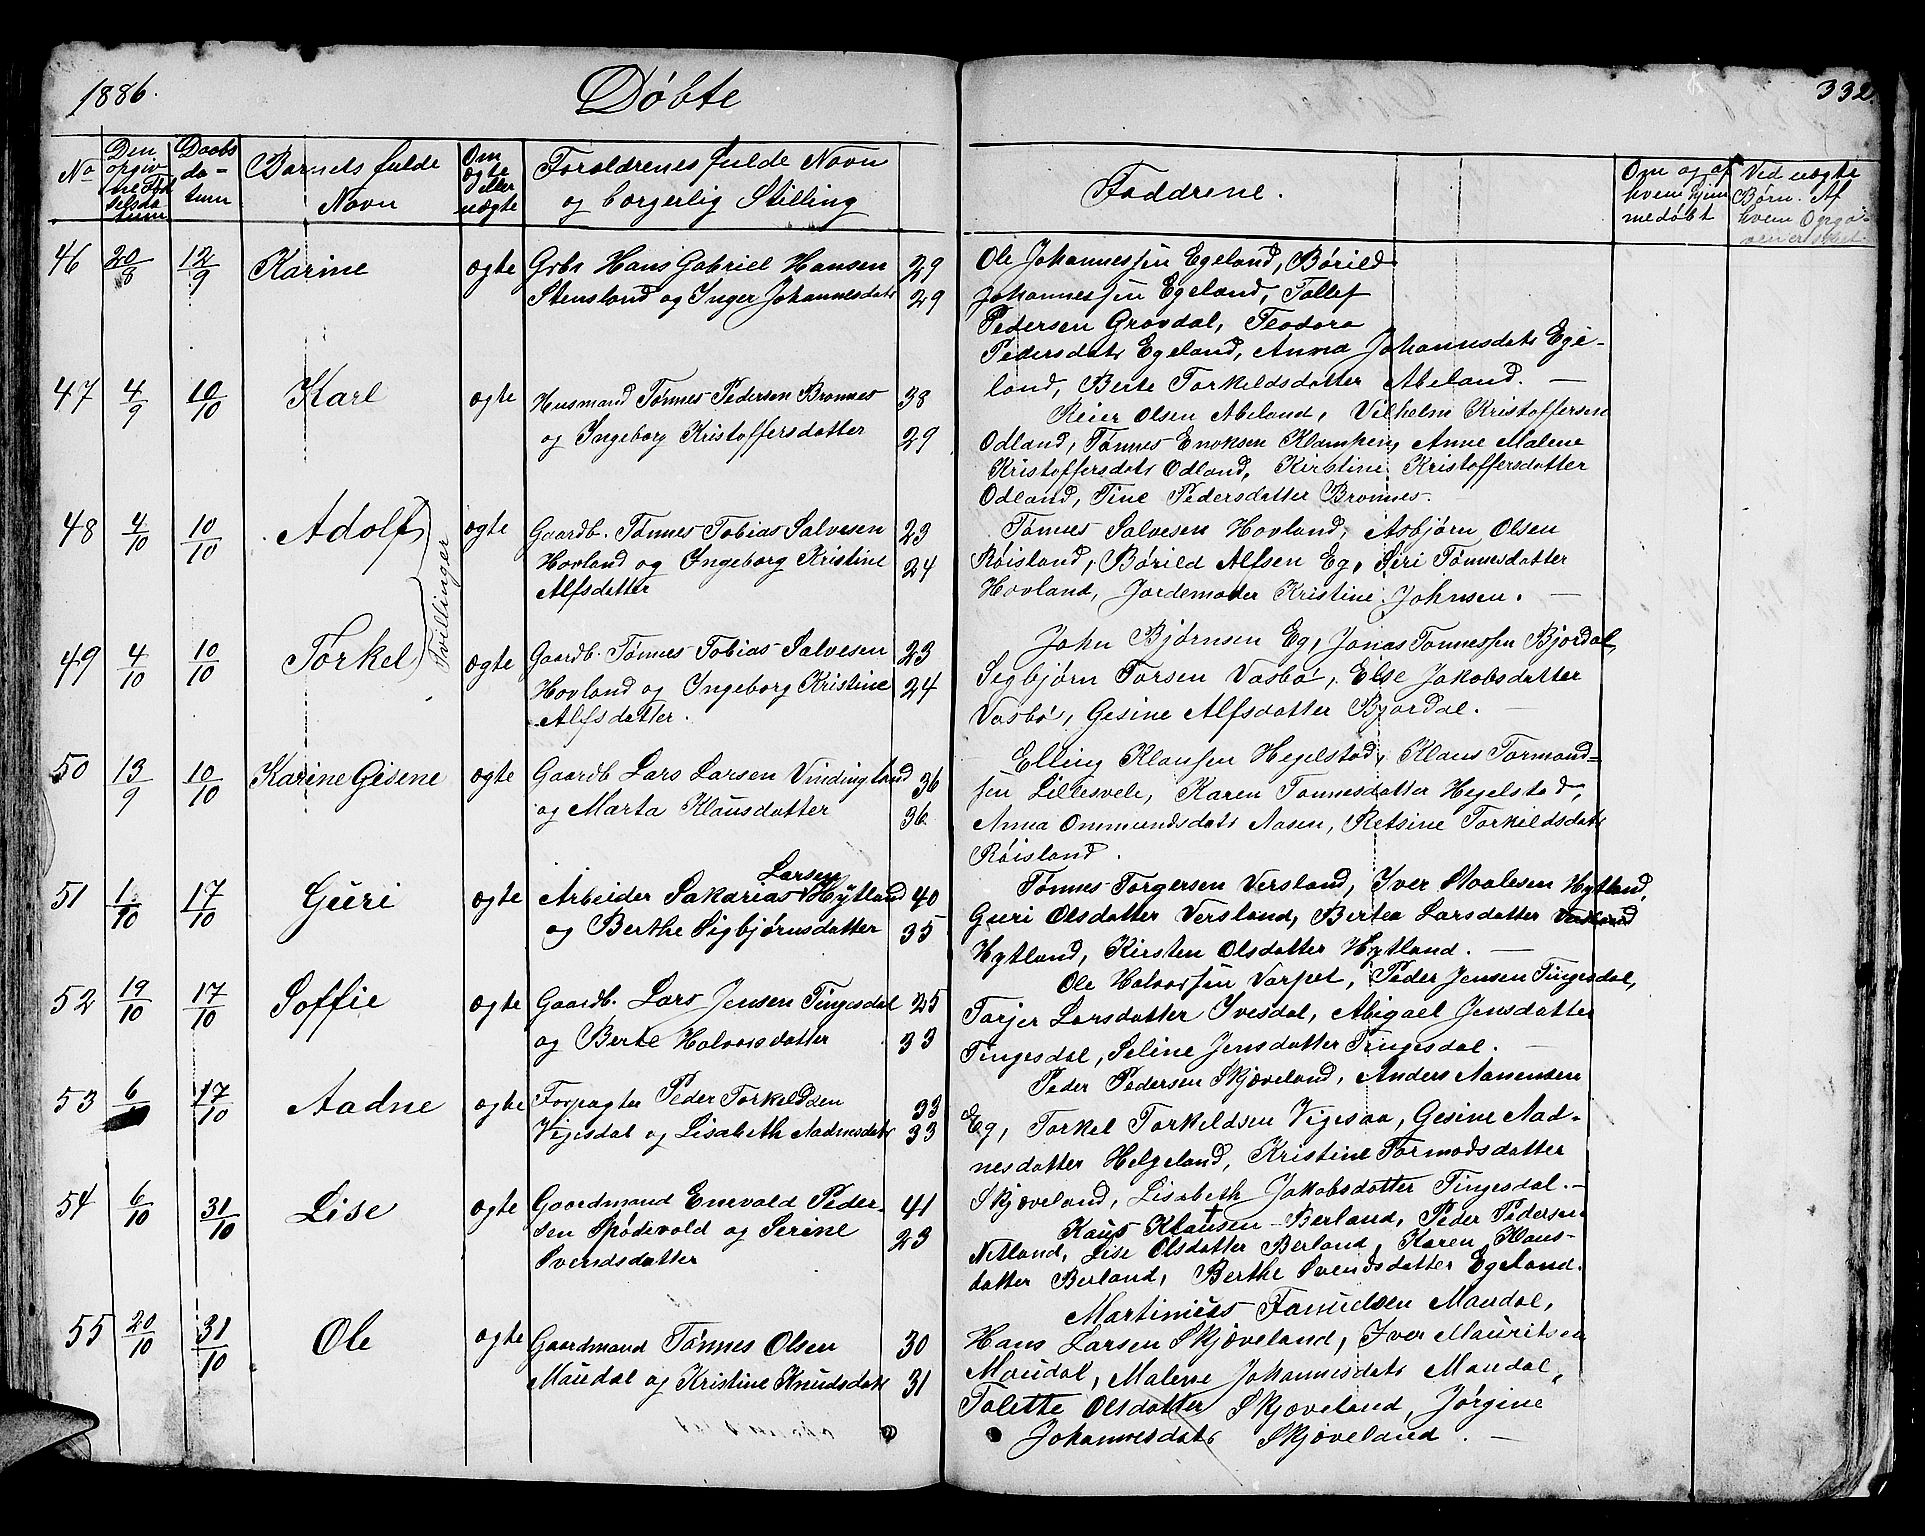 1886.
Døbte
332.
No
Den opgivne Fødselsdatum
Daabsdatum
Barnets fulde Navn
Om ægte eller uægte
Forældrenes fulde Navn og borgerlig Stilling
Faddrene.
Om og af hvem hjemmedøbt
Ved uægte Børn. Af hvem
46 20/8 12/9 Karine ægte Grbr Hans Gabriel Hansen 29
Stensland og Inger Johannesdatr 29
Ole Johannessen Egeland, Børild
Johannessen Egeland, Tollef
Pedersen Grovdal, Teodora
Pedersdatr Egeland, Anna Johannesdatr Ege-
land, Berte Torkeldsdatter Abeland. —
47 4/9 10/10 Karl ægte Husmand Tønnes Pedersen Bronnes 38
og Ingeborg Kristoffersdatter 29
Reier Olsen Abeland, Vilhelm Kristoffersen
Odland, Tønnes Enoksen Klampen, Anne Malene
Kristoffersdatr Odland, Kirstine Kristoffersdatter
Odland, Tine Pedersdatter Bronnes.
48 4/10 10/10 Adolf ægte Gaardb. Tønnes Tobias Salvesen 23
Hovland og Ingeborg Kristine 24
Alfsdatter
Tvillinger
Tønnes Salvesen Hovland, Asbjørn Olsen
Røisland, Børild Alfsen Eg, Siri Tønnesdatter
Hovland, Jordemoder Kristine Johnsen. —
49 4/10 10/10 Torkel ægte Gaardb. Tønnes Tobias Salvesen 23
Hovland og Ingeborg Kristine 24
Alfsdatter.
John Bjørnsen Eg, Jonas Tonnessen Bjordal,
Segbjørn Torsen Vasbø, Else Jakobsdatter
Vasbø, Gesine Alfsdatter Bjordal. —
50 13/9 10/10 Karine Gisene ægte Gaardb Lars Larsen Vindingland 36
og Marta Klausdatter 36
Elling Klausen Hegelstad, Klaus Tormond=
sen Lillesvele, Karen Tonnesdatter Hegelstad,
Anna Ommundsdatr Aasen, Retsine Torkildsdatr
Røisland.
51 1/10 17/10 Guri ægte Arbeider Sakarias Larsen Hytland 40
og Berthe Sigbjørnsdatter 35
Tønnes Torgersen Versland, Iver Staalesen Hytland,
Guri Olsdatter Versland, Bertea Larsdatter
Hytland, Kirsten Olsdatter Hytland. —
52 19/10 17/10 Soffie ægte Gaardb. Lars Jensen Tingesdal 25
og Berte Halvorsdatter 33
Ole Halvorsen Varpet, Peder Jensen Tingesdal,
Torjer Larsdatter Ivesdal, Abigael Jensdatter
Tingesdal, Seline Jensdatter Tingesdal. —
53 6 17/10 Aadne ægte Forpagter Peder Torkeldsen 33
Vigesdal og Lisabeth Aadnesdatr 33
Peder Pedersen Skjæveland, Anders Nanensen
Eg, Torkel Torkeldsen Vigesaa, Gesine Aad-
nesdatter Helgeland, Kristine Tormodsdatter
Skjæveland, Lisabeth Jakobsdatter Tingesdal. —
54 6/10 31/10 Lise ægte Gaardmand Enevald Peder- 41
sen Spødevold og Serine 23
Svendsdatter
Kaus Klausen Berland, Peder Pedersen
Netland, Lise Olsdatter Berland, Karen Klaus-
datter Berland, Berthe Svendsdatter Egeland.
55 20/10 31/10 Ole ægte Gaardmand Tønnes Olsen 30
Maudal og Kristine Knudsdatr 31
Martinius Samuelsen Maudal,
Hans Larsen Skjæveland, Iver Mauritsen
Maudal, Malene Johannesdatr Maudal,
Talette Olsdatter Skjæveland, Jørgine
Johannesdatr Skjæveland. —